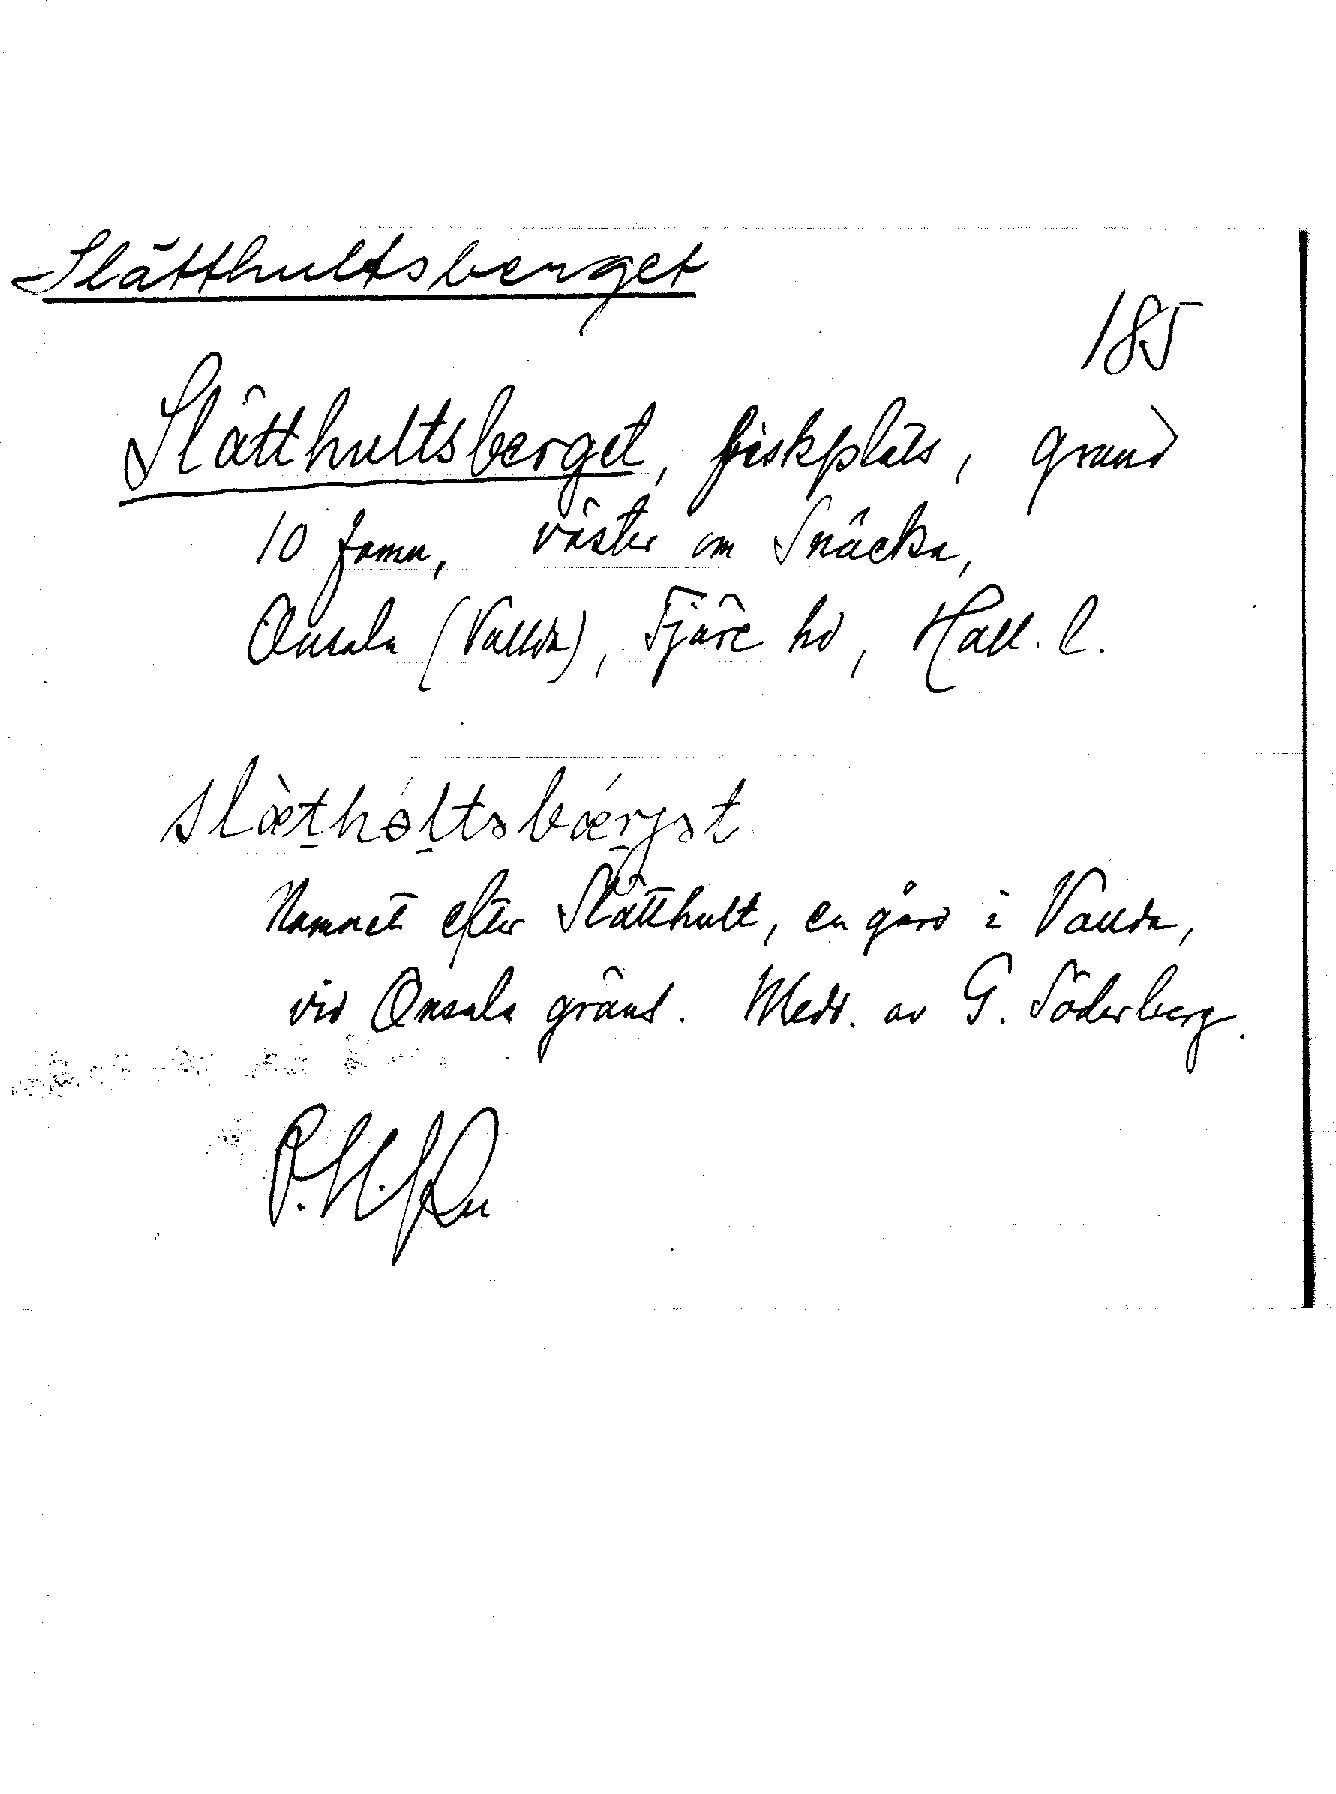 Slätthultsberget
185
Slätthultsberget, fiskplats, grund
10 famn, väster om Snäcka,
Onsala (Vallda), Fjäre hd, Hall. l.
Namnet efter Slätthult, en gård i Vallda,
vid Onsala gräns. Medd. av G. Söderberg.